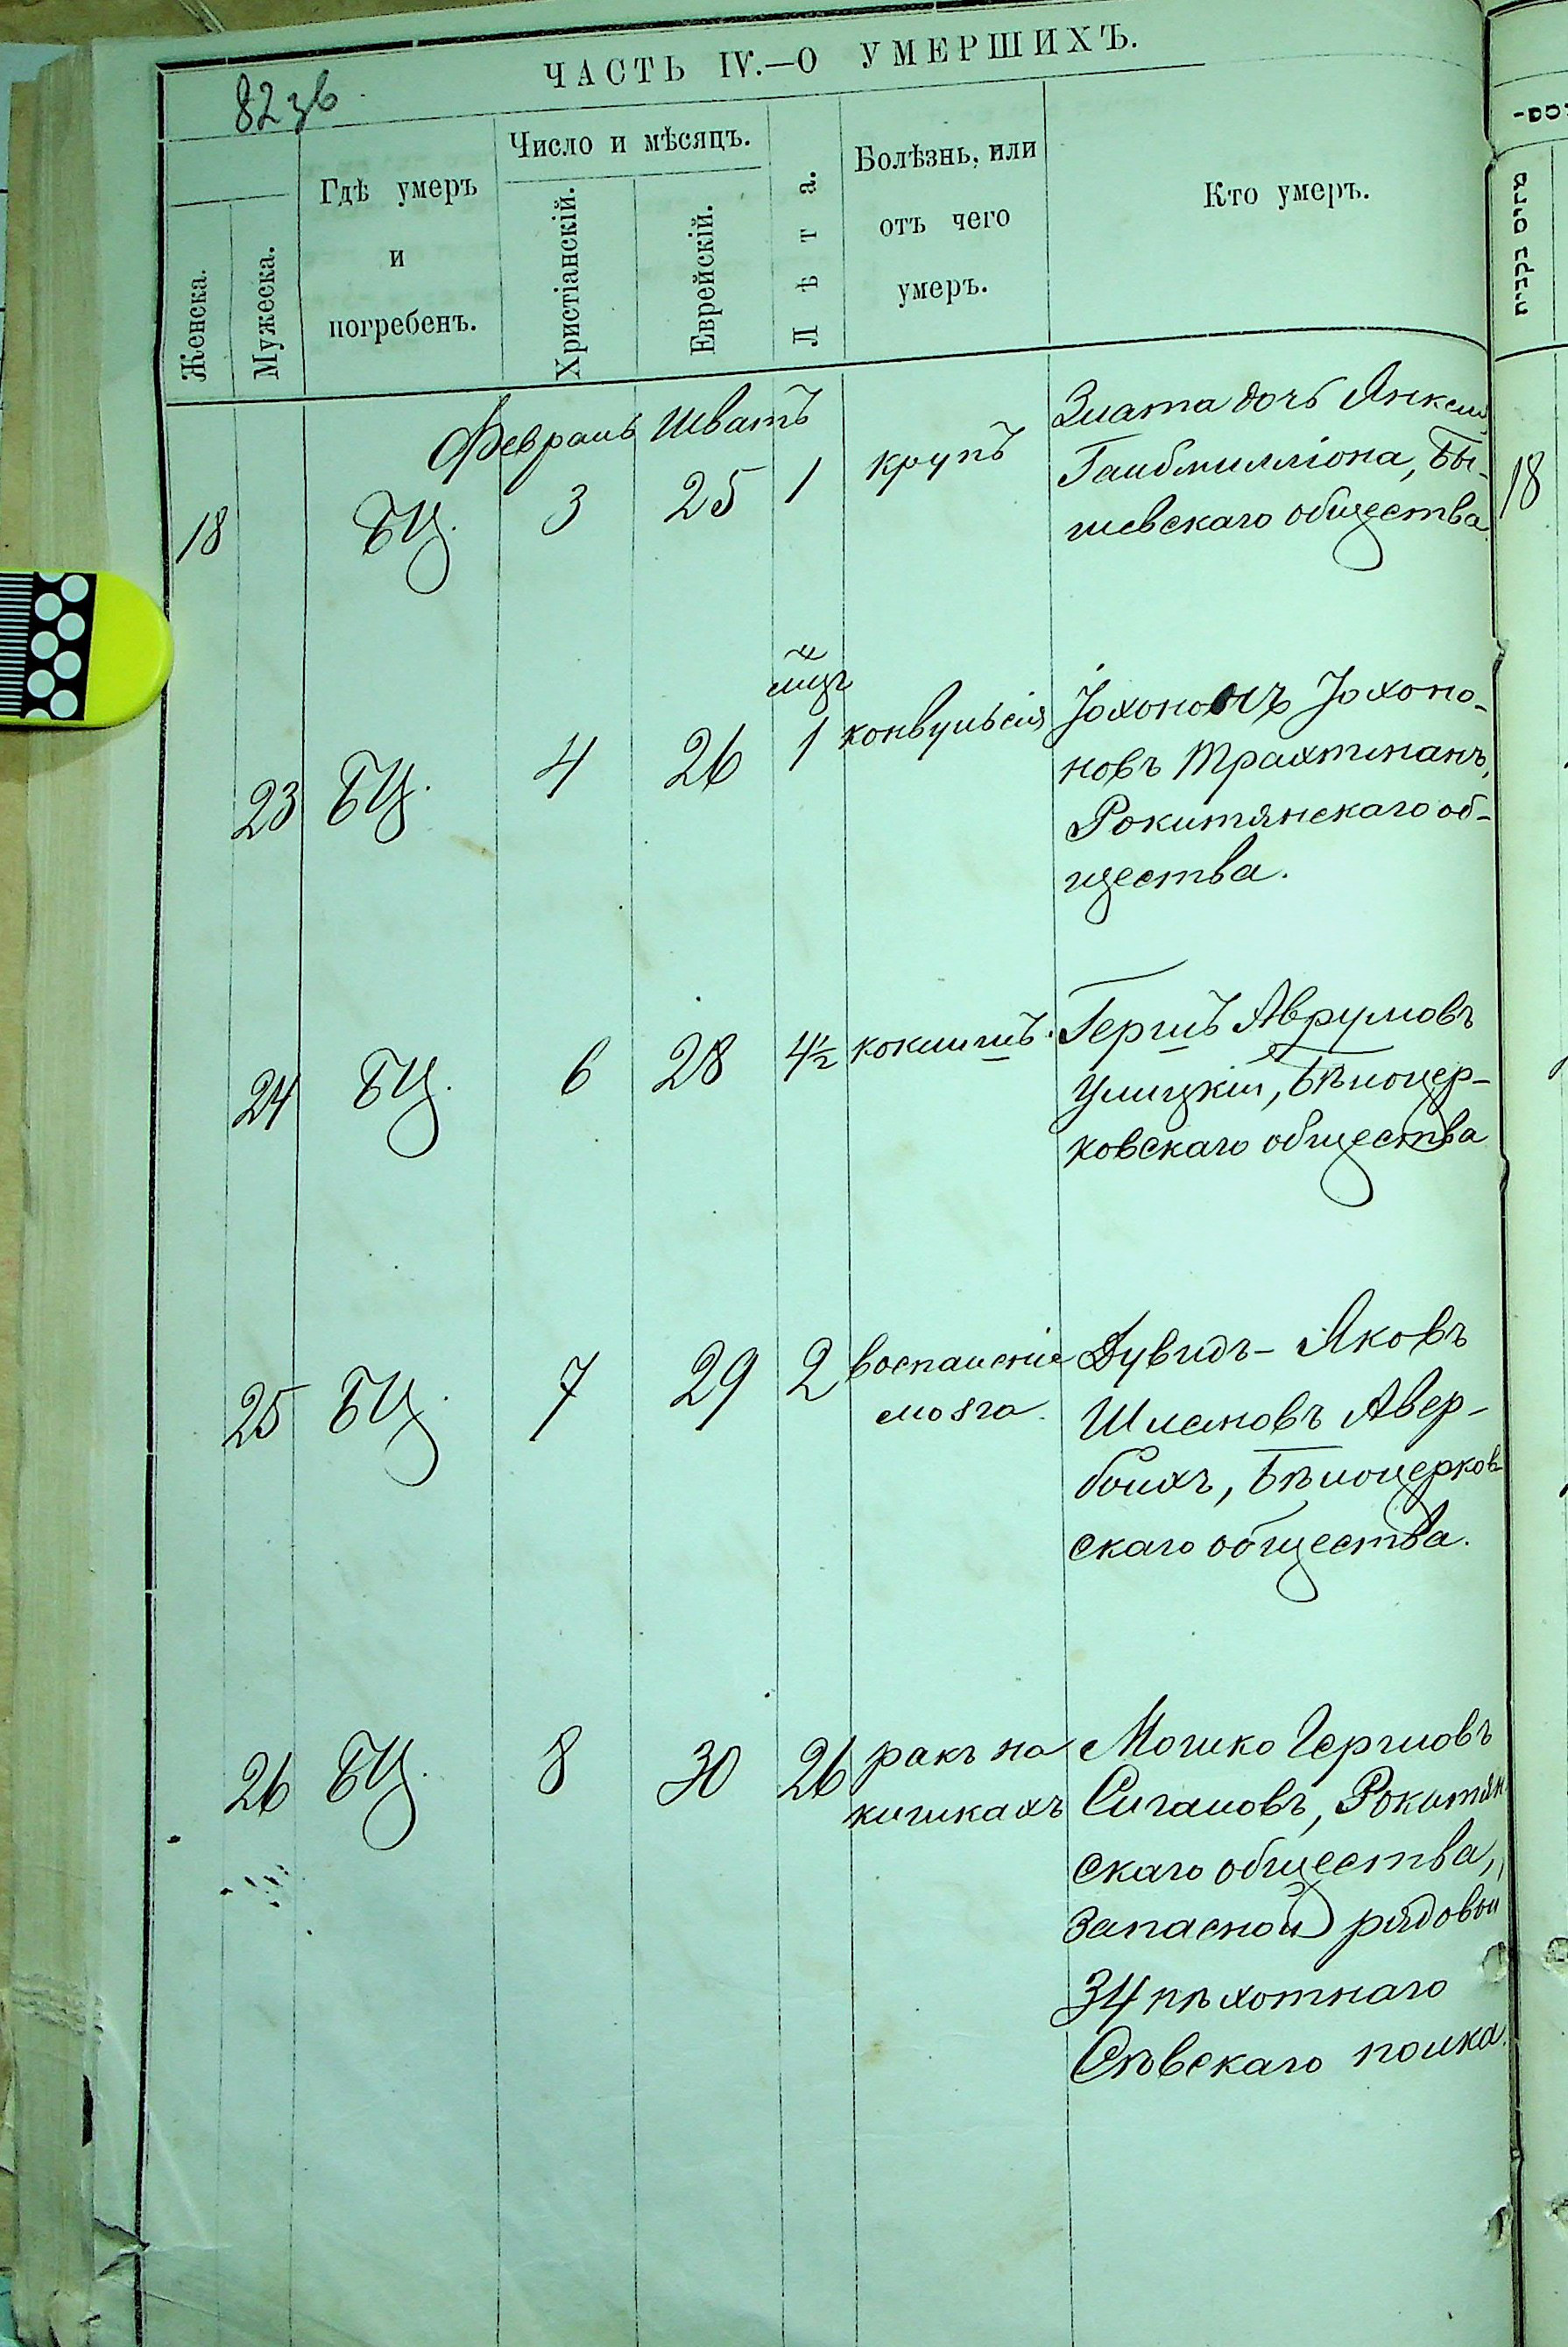 ЧАСТЬ IV.—О УМЕРШИХЪ.
82 зв
Женска.
Мужеска.
Гдѣ умеръ
и
погребенъ.
Число и мѣсяцъ.
Христіанскій.
Еврейскій.
Лѣта.
Болѣзнь, или
отъ чего
умеръ.
Кто умеръ.
Февраль Шватъ
18 БЦ. 3 25 1 крупъ Злата дочь Янкеля
Галбмилліона, Бы-
шевскаго общества.
18
мцъ
23 БЦ. 4 26 1 конвульсія Іохононъ Іохоно-
новъ Трахтманъ,
Рокитянскаго об-
щества.
24 БЦ. 6 28 4½ коклишъ. Гершъ Аврумовъ
Улицкій, Бѣлоцер-
ковскаго общества
25 БЦ. 7 29 2 воспаленіе Дувидъ-Яковъ
мозга. Шлемовъ Авер-
бойхъ, Бѣлоцерков
скаго общества.
26 БЦ. 8 30 26 ракъ на Мошко Гершовъ
кишкахъ Сигаловъ, Рокитян
скаго общества,
запасной рядовой
34 пѣхотнаго
Сѣвскаго полка.